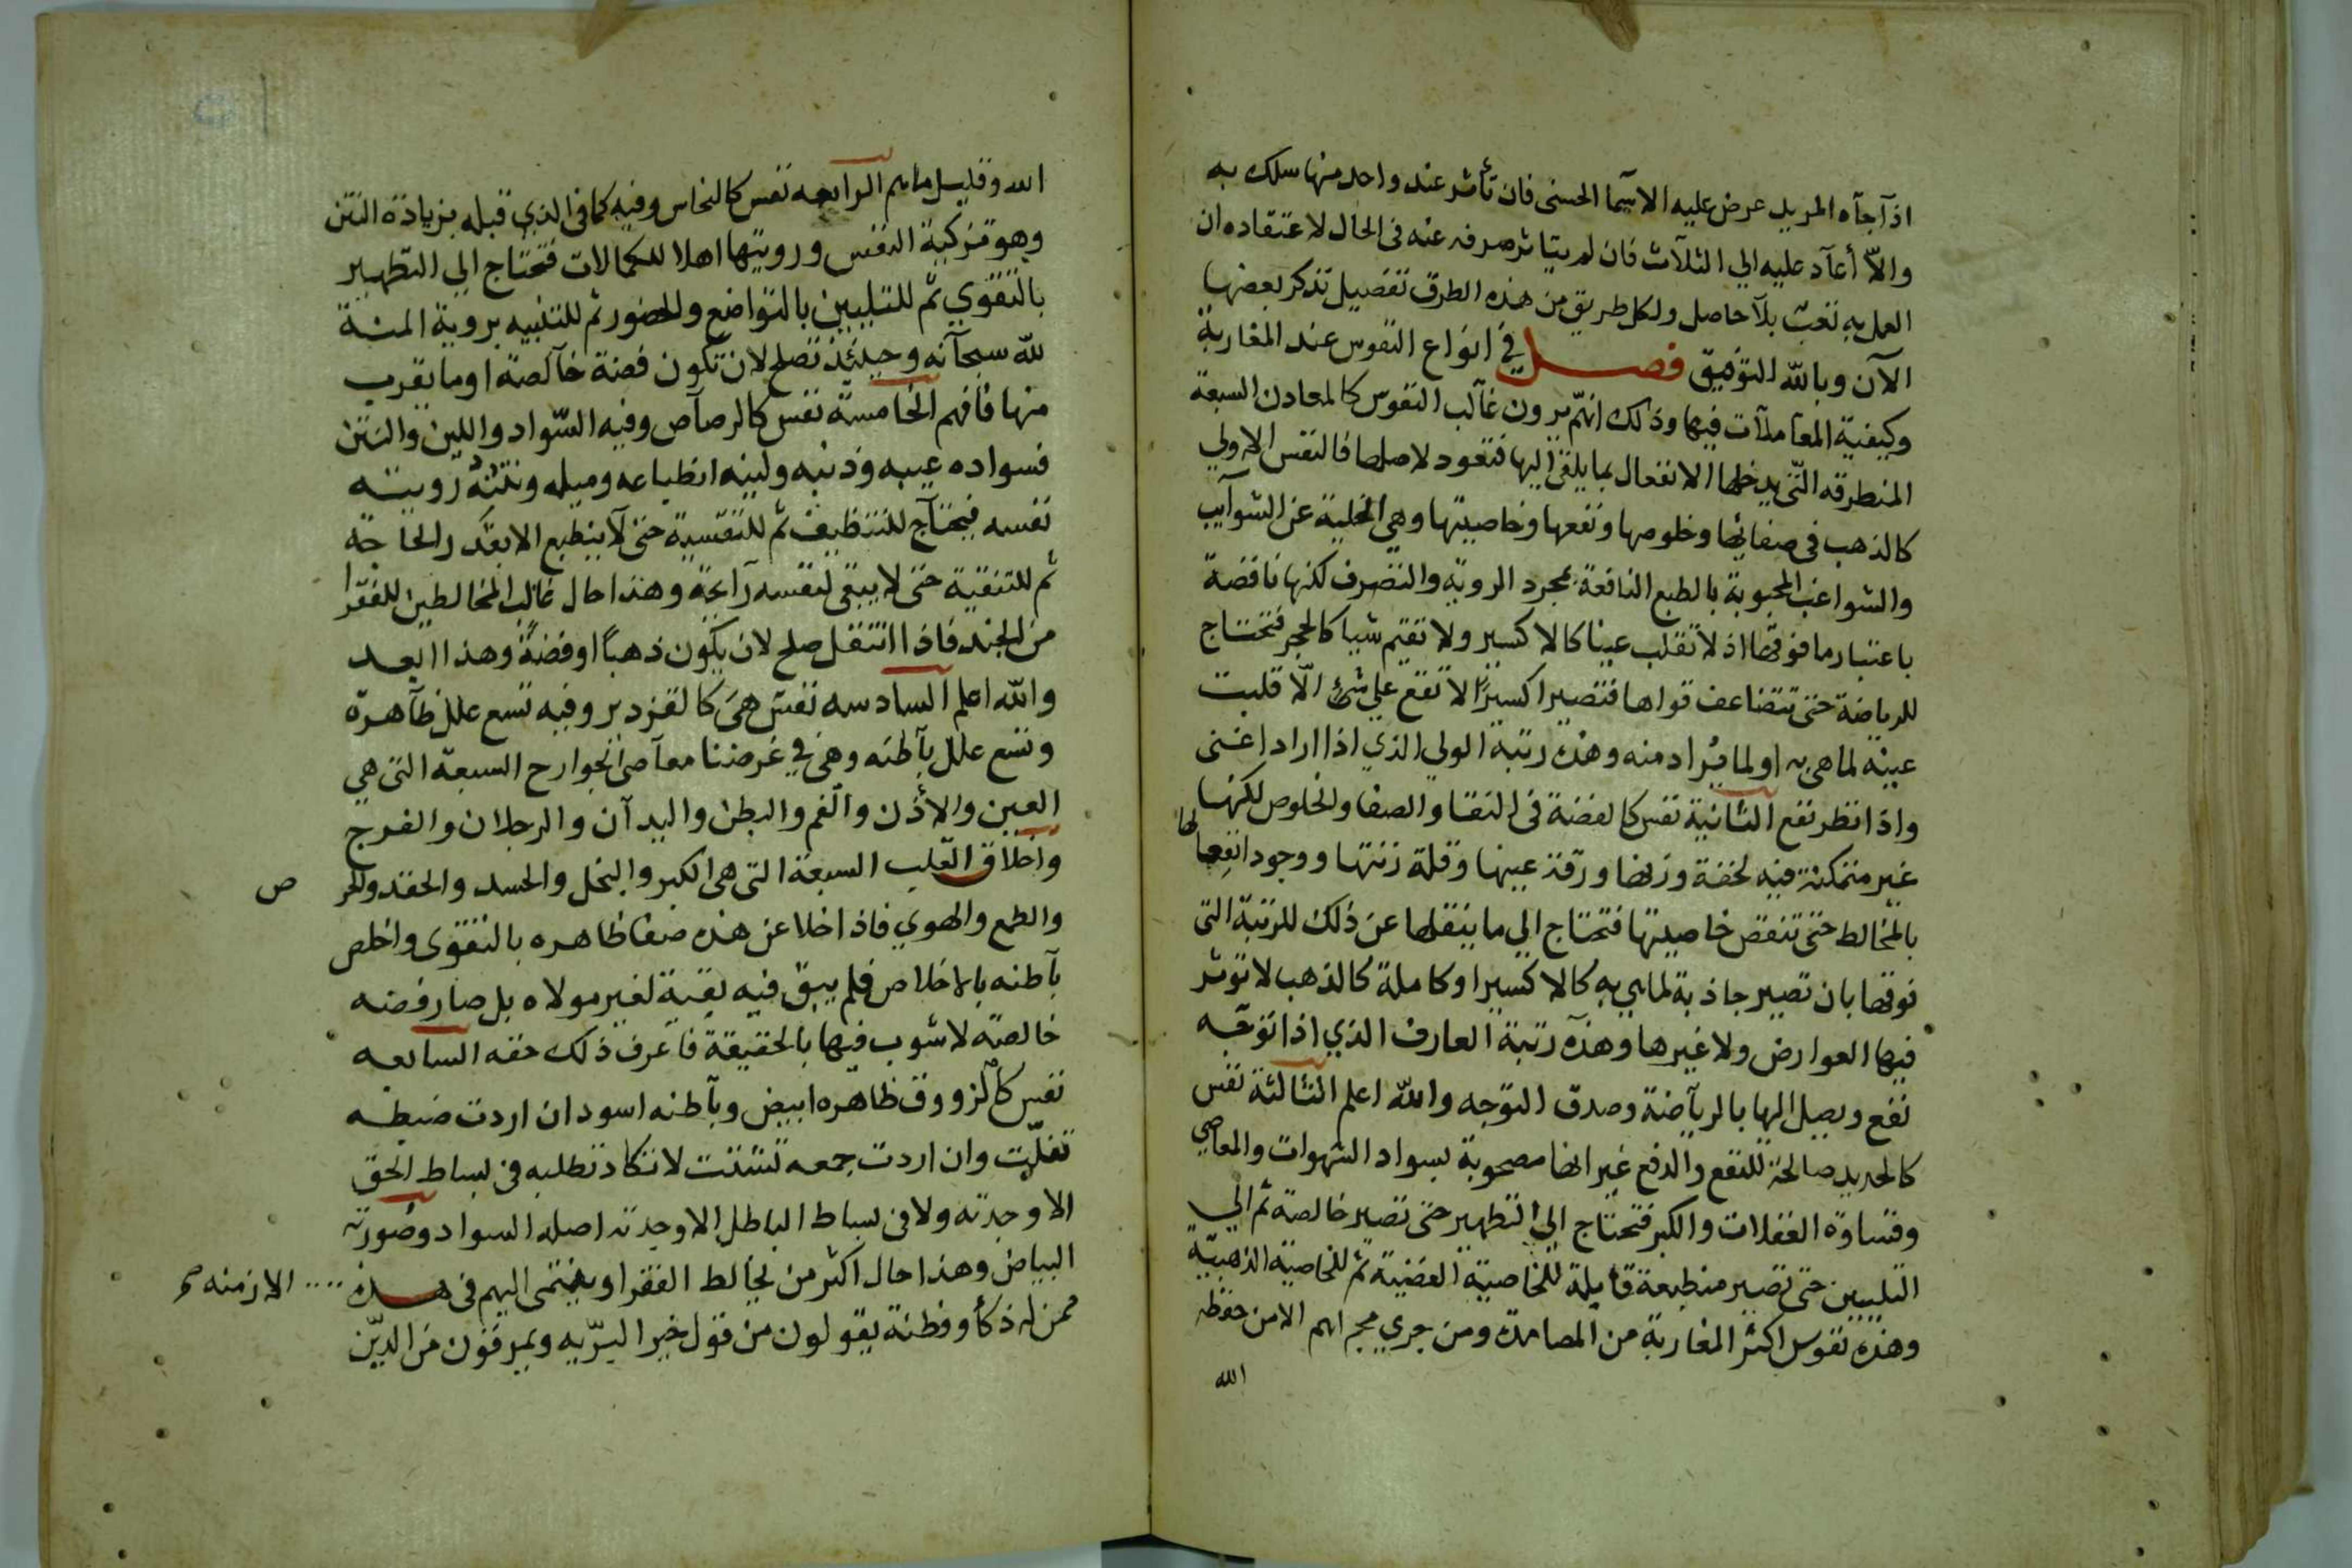 اذآ جآه المريد عرض عليه الاسما الحسنى فان تأثر عند واحد منها سلك به
والآ أعآد عليه الي الثلآث فان لم يتاثر صرفه عنه فى الحال لاعتقاده ان
العمل به تعب بلآ حاصل ولكل طريق من هذه الطرق تفصيل تذكر بعضها
الآن وبالله التوفيق فصل في انواع النفوس عند المغاربة
وكيفية المعاملآت فيها وذلك انهم يرون غآلب النفوس كالمعادن السبعة
المنطرقه التى يدخلها الانفعال بما يلقى اليها فتعود لاصلها فالنفس الاولي
كالذهب فى صفائها وخلوصها ونفعها وخاصيتها وهي الخلية عن الشوآيب
والشواغب المحبوبة بالطبع النافعة بمجرد الروية والتصرف لكنها ناقصة
باعتبار ما فوقها اذ لا تقلب عينا كالاكسير ولا تقيم شيا كالحجر فتحتاج
للرياضة حتى تتضاعف قواها فتصير اكسيرا لا تقع علي شئ الّا قلبت
عينه لما هى به او لما يُراد منه وهذه رتبة الولي الذي اذا اراد اغنى
واذا نظر نفع الثانية نفس كالفضة فى النقا والصفا والخلوص لكنها
غير متمكنة فيه لخفة وزنها ورقة عينها وقلة زنتها ووجود انفعالها
بالمخالط حتى تنقص خاصيتها فتحتاج الي ما ينقلها عن ذلك للرتبة التى
فوقها بان تصير جاذبة لما يى به كالاكسير او كاملة كالذهب لا توثر
فيها العوارض ولا غيرها وهذه رتبة العارف الذي اذا توجه
نفع ويصل اليها بالرياضة وصدق التوجه والله اعلم الثالثة نفس
كالحديد صالحة للنفع والدفع غير انها مصحوبة بسواد الشهوات والمعاصي
وقساوة الغفلات والكبر فتحتاج الي التطهير حتى تصير خالصة ثم الي
التليين حتى تصير منطبعة قابلة للخاصية الفضية ثم للخاصية الذهبية
وهذه نفوس اكثر المغاربة من المصامدة ومن جري مجراهم الا من حفظه
الله
الله وقليل ما هم الرابعه نفس كالنحاس وفيه كما فى الذي قبله بزيادة النتن
وهو تزكية النفس ورويتها اهلا للكمالات فتحتاج الي التطهير
بالتقوي ثم للتليين بالتواضع والحضور ثم للتنبيه بروية المنة
لله سبحآنه وحينئذ تصلح لان تكون فضة خآلصة او ما يقرب
منها فافهم الخامسة نفس كالرصآص وفيه السّواد واللين والنتن
فسواده عيبه وذنبه ولينه انطباعه وميله ونتنه رويته
نفسه فيحتآج للتنظيف ثم للتقسية حتى لآ ينطبع الا بقدر الحاجة
ثم للتنقية حتى لا يبقى لنفسه رآئحة وهذا حال غالب المخالطين للفقرا
من الجند فاذا انتقل صلح لان يكون ذهبًا او فضةً وهذا ابعد
والله اعلم السادسه نفس هى كالقزدير وفيه تسع علل ظآهرة
وتسع علل بآطنه وهى في غرضنا معآصى الجوارح السبعة التى هي
العين والاذن والفم والبطن واليدآن والرجلان والفرج
واخلاق القلب السبعة التى هى الكبر والبخل والحسد والحقد والمكر
ص
والطمع والهوي فاذا خلا عن هذه صفا ظاهره بالتقوى واخلص
بآطنه بالاخلاص فلم يبق فيه بقية لغير مولاه بل صار فضه
خالصة لا شوب فيها بالحقيقة فاعرف ذلك حقه السابعه
نفس كالزووق ظاهره ابيض وبآطنه اسود ان اردت ضبطه
تفلّت وان اردت جمعه تشتت لا تكاد تطلبه فى بساط الحق
الا وجدته ولا فى بساط الباطل الا وجدته اصله السواد وصورته
البياض وهذا حال اكثر من يخالط الفقرا وينتمى اليهم فى هذه .... الازمنه
ممن له ذكأ وفطنة يقولون من قول خير البرّيه ويمرقون من الدّين